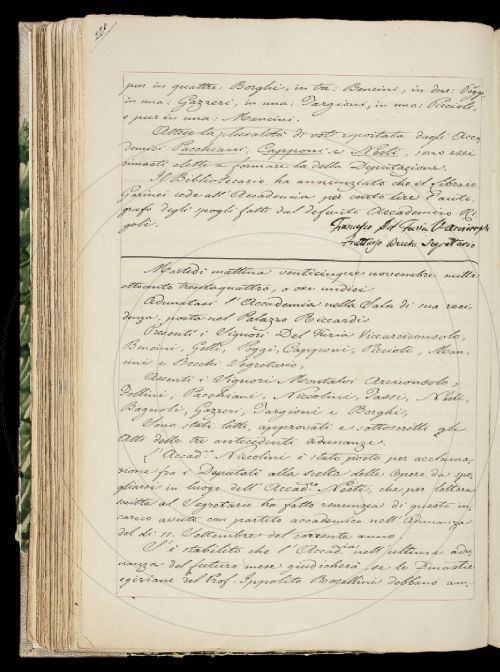 pur in quattro: Borghi, in tre: Bencini, in due: Poggi
in una: Gazzeri, in una: Targioni, in una: Piccioli
e pur in una: Mancini.
Attesa la pluralità di voti riportata dagli Acca-
demici Pacchiani, Capponi e Nesti, sono essi
rimasti eletti a formare la detta Deputazione.
Il Bibliotecario ha annunziato che il libraro
Garinei cede all'Accademia per cento lire l'auto-
grafo degli spogli fatti dal defunto Accademico Ri-
goli.
Francesco Del Furia V. Arciconsolo
Fruttuoso Becchi Segretario
Martedì mattina venticinque novembre mille
ottocento trentaquattro, a ore undici
Adunatasi l'Accademia nella Sala di sua resi-
denza, posta nel Palazzo Riccardi
Presenti i Signori Del Furia Vicearciconsolo,
Bencini, Gelli, Poggi, Capponi, Piccioli, Man-
cini e Becchi Segretario,
Assenti i Signori Montalvi Arciconsolo,
Follini, Pacchiani, Niccolini, Tassi, Nesti,
Bagnoli, Gazzeri, Targioni e Borghi,
Sono stati letti, approvati e sottoscritti gli
Atti delle tre antecedenti adunanze.
L'Accad.co Niccolini è stato posto per acclama-
zione fra i Deputati alla scelta delle Opere da spo-
gliarsi in luogo dell'Accad.co Nesti, che per lettera
scritta al Segretario ha fatto renunzia di questo in-
carico avuto con partito accademico nell'Adunanza
del dì 11. Settembre del corrente anno.
S'è stabilito che l'Accad.ia nell'ultima adu-
nanza del futuro mese giudicherà, se le Dinastie
egiziane del Prof. Ippolito Rosellini debbano am-